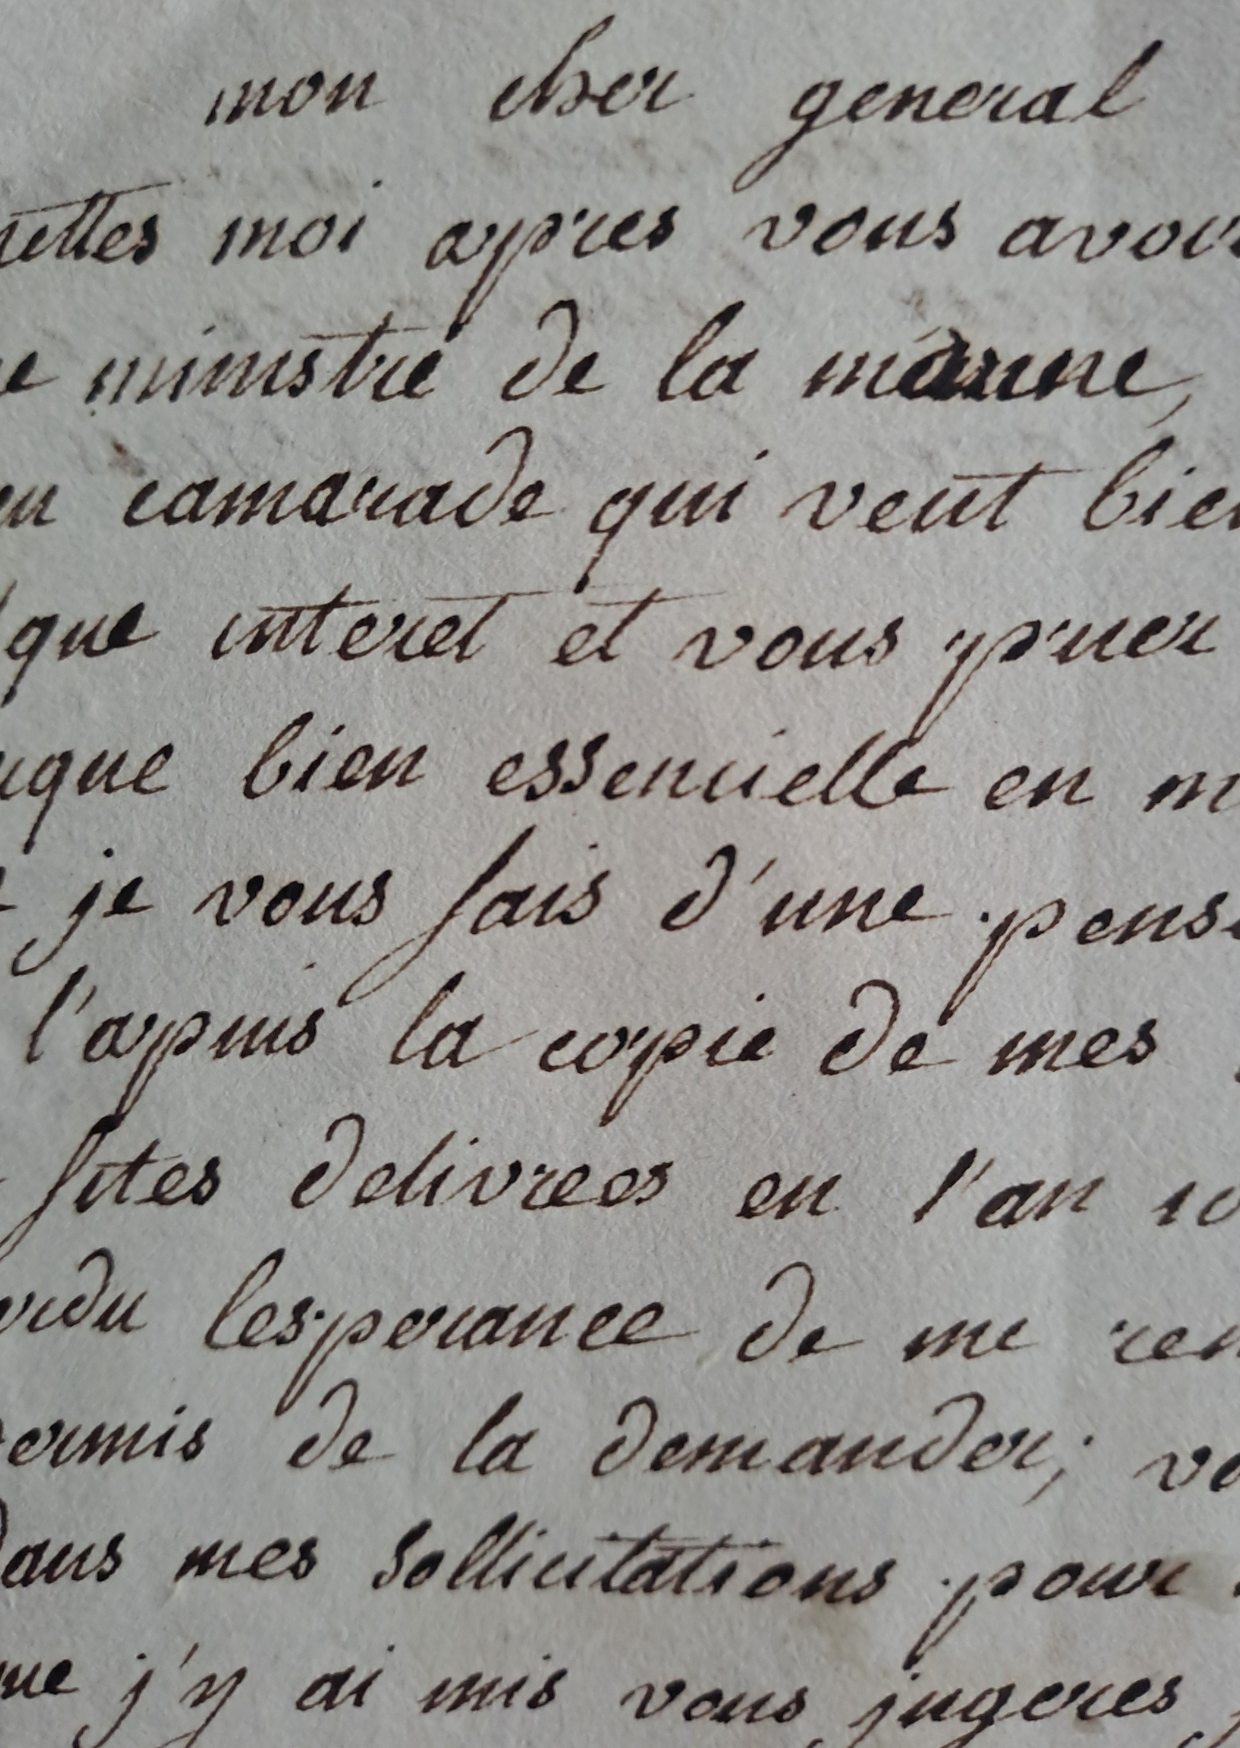 mon cher general
mettes moi apres vous avoir
ministre de la marine,
camarade qui veut bien
que interet et vous prier
que bien essencielle en
je vous fais d'une pens
l'apuis la copie de mes
fites delivrees en l'an 10
erdu lesperance de me ren
ermis de la demander; vo
dans mes sollicitations pour
que j'y ai mis vous jugeres